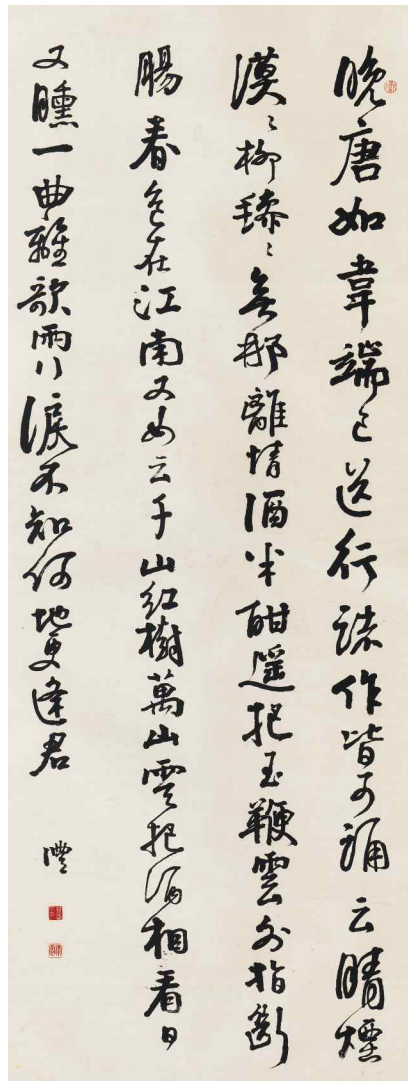 晚唐如韋端己送行諸作皆可誦云晴煙
漠漠柳毿毿無那離情酒半酣遥把玉鞭雲外指斷
腸春色在江南又如云千山紅樹萬山雲把酒相看日
又曛一曲離歌兩行淚不知何地更逢君
灃